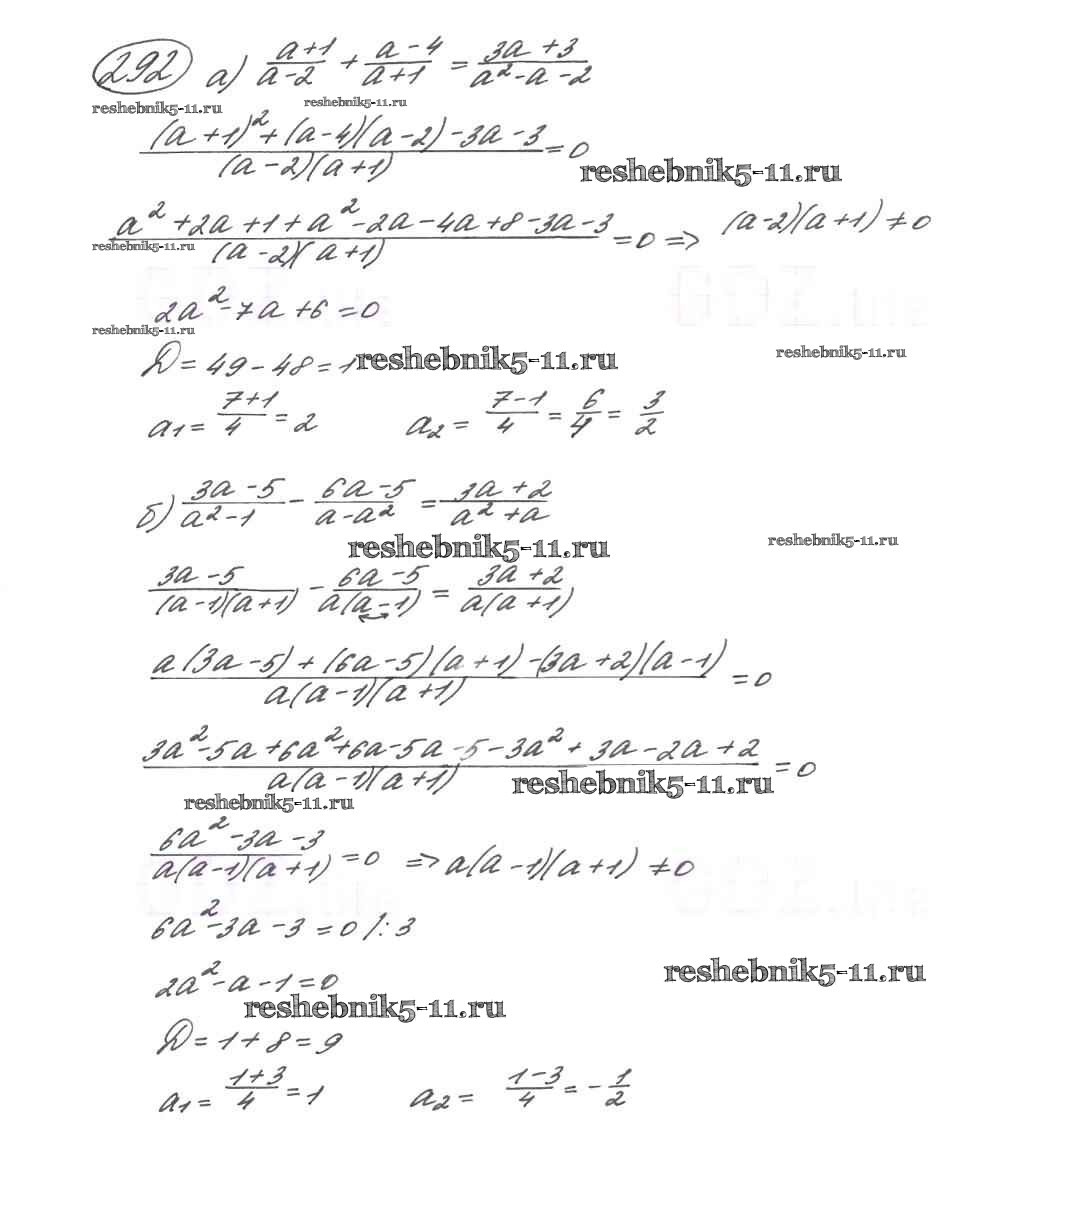 292 а) (a+1)/(a-2) + (a-4)/(a+1) = (3a+3)/(a²-a-2)
reshebnik5-11.ru reshebnik5-11.ru
((a+1)²+(a-4)(a-2)-3a-3)/((a-2)(a+1)) = 0
reshebnik5-11.ru
(a²+2a+1+a²-2a-4a+8-3a-3)/((a-2)(a+1)) = 0 => (a-2)(a+1)≠0
reshebnik5-11.ru
2a²-7a+6=0
reshebnik5-11.ru
D=49-48=1 reshebnik5-11.ru reshebnik5-11.ru
a₁ = (7+1)/4 = 2 a₂ = (7-1)/4 = 6/4 = 3/2
б) (3a-5)/(a²-1) - (6a-5)/(a-a²) = (3a+2)/(a²+a)
reshebnik5-11.ru reshebnik5-11.ru
(3a-5)/((a-1)(a+1)) - (6a-5)/(a(a-1)) = (3a+2)/(a(a+1))
(a(3a-5)+(6a-5)(a+1)-(3a+2)(a-1))/(a(a-1)(a+1)) = 0
(3a²-5a+6a²+6a-5a-5-3a²+3a-2a+2)/(a(a-1)(a+1)) = 0
reshebnik5-11.ru
reshebnik5-11.ru
(6a²-3a-3)/(a(a-1)(a+1)) = 0 => a(a-1)(a+1)≠0
6a²-3a-3=0 /:3
2a²-a-1=0 reshebnik5-11.ru
reshebnik5-11.ru
D=1+8=9
a₁ = (1+3)/4 = 1 a₂ = (1-3)/4 = -1/2